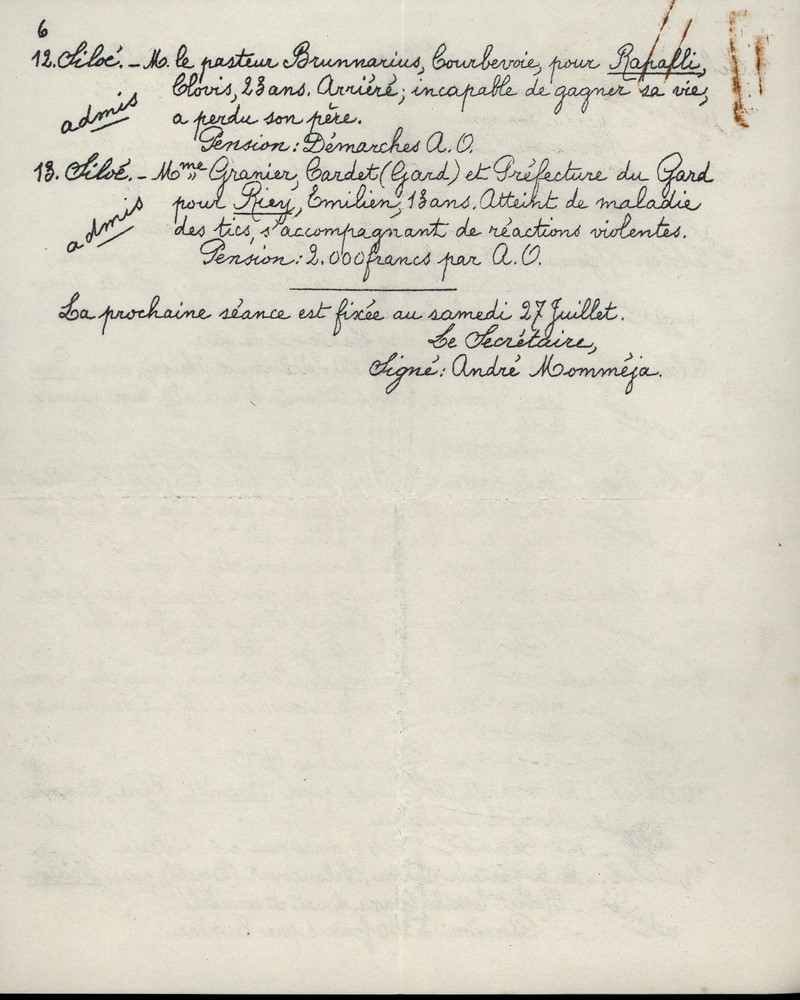 6
12. Siloé. - M. le pasteur Brunnarius, Courbevoie, pour Rapalli,
Clovis, 23 ans. Arriéré; incapable de gagner sa vie,
admis
a perdu son père.
Pension: Démarches A.O.
13. Siloé. - Mme Granier, Cardet (Gard) et Préfecture du Gard
pour Riey, Emilien, 13 ans. Atteint de maladie
admis
des tics, s'accompagnant de réactions violentes.
Pension: 2.000 francs par A.O.
La prochaine séance est fixée au samedi 27 Juillet.
Le Secrétaire,
Signé: André Momméja.